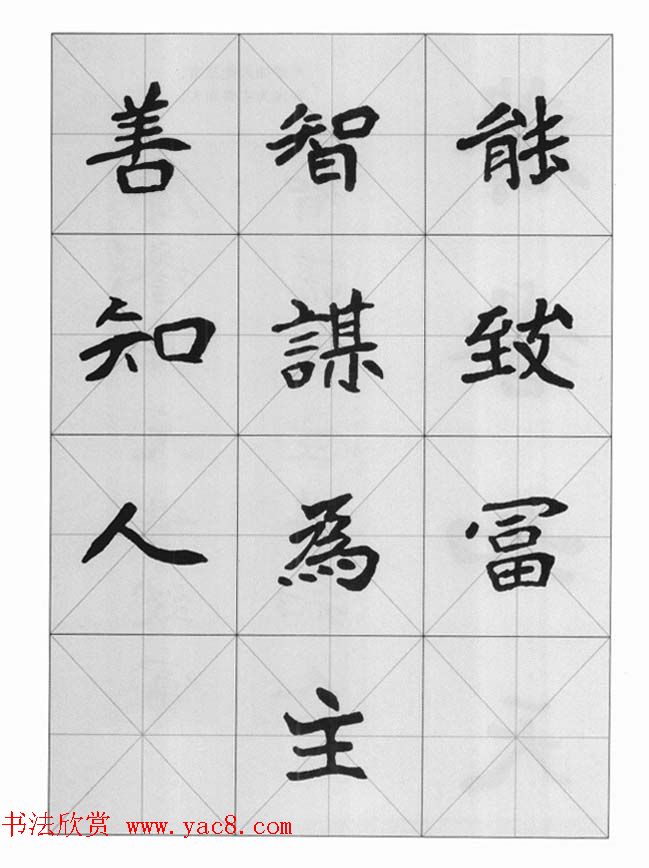 能致冨
智謀為主
善知人
书法欣赏 www.yac8.com